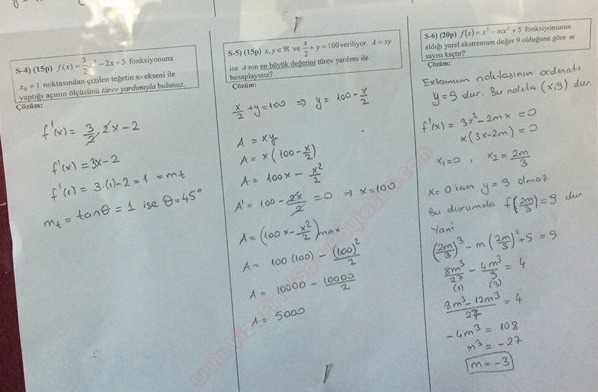 S-4) (15p) f(x) = 3/2 x² - 2x + 5 fonksiyonuna
x₀ = 1 noktasından çizilen teğetin x- ekseni ile
yaptığı açının ölçüsünü türev yardımıyla bulunuz.
Çözüm:
f'(x) = 3/2 . 2x - 2
f'(x) = 3x - 2
f'(1) = 3.(1) - 2 = 1 = m_t
m_t = tanθ = 1 ise θ = 45°
S-5) (15p) x, y ∈ ℜ ve x/2 + y = 100 veriliyor. A = xy
ise A nın en büyük değerini türev yardımı ile
hesaplayınız?
Çözüm:
x/2 + y = 100 ⇒ y = 100 - x/2
A = xy
A = x(100 - x/2)
A = 100x - x²/2
A' = 100 - 2x/2 = 0 ⇒ x = 100
A = (100x - x²/2)max
A = 100(100) - (100)²/2
A = 10000 - 10000/2
A = 5000
S-6) (20p) f(x) = x³ - mx² + 5 fonksiyonunun
aldığı yerel ekstremum değer 9 olduğuna göre m
sayısı kaçtır?
Çözüm:
Extremum noktasının ordinatı
y = 9 dur. Bu nokta (x, 9) dur.
f'(x) = 3x² - 2mx = 0
x(3x - 2m) = 0
x₁ = 0, x₂ = 2m/3
x = 0 için y = 9 olmaz
Bu durumda f(2m/3) = 9 dur
Yani
(2m/3)³ - m(2m/3)² + 5 = 9
8m³/27 - 4m³/9 = 4
(1) (3)
8m³ - 12m³/27 = 4
-4m³ = 108
m³ = -27
m = -3